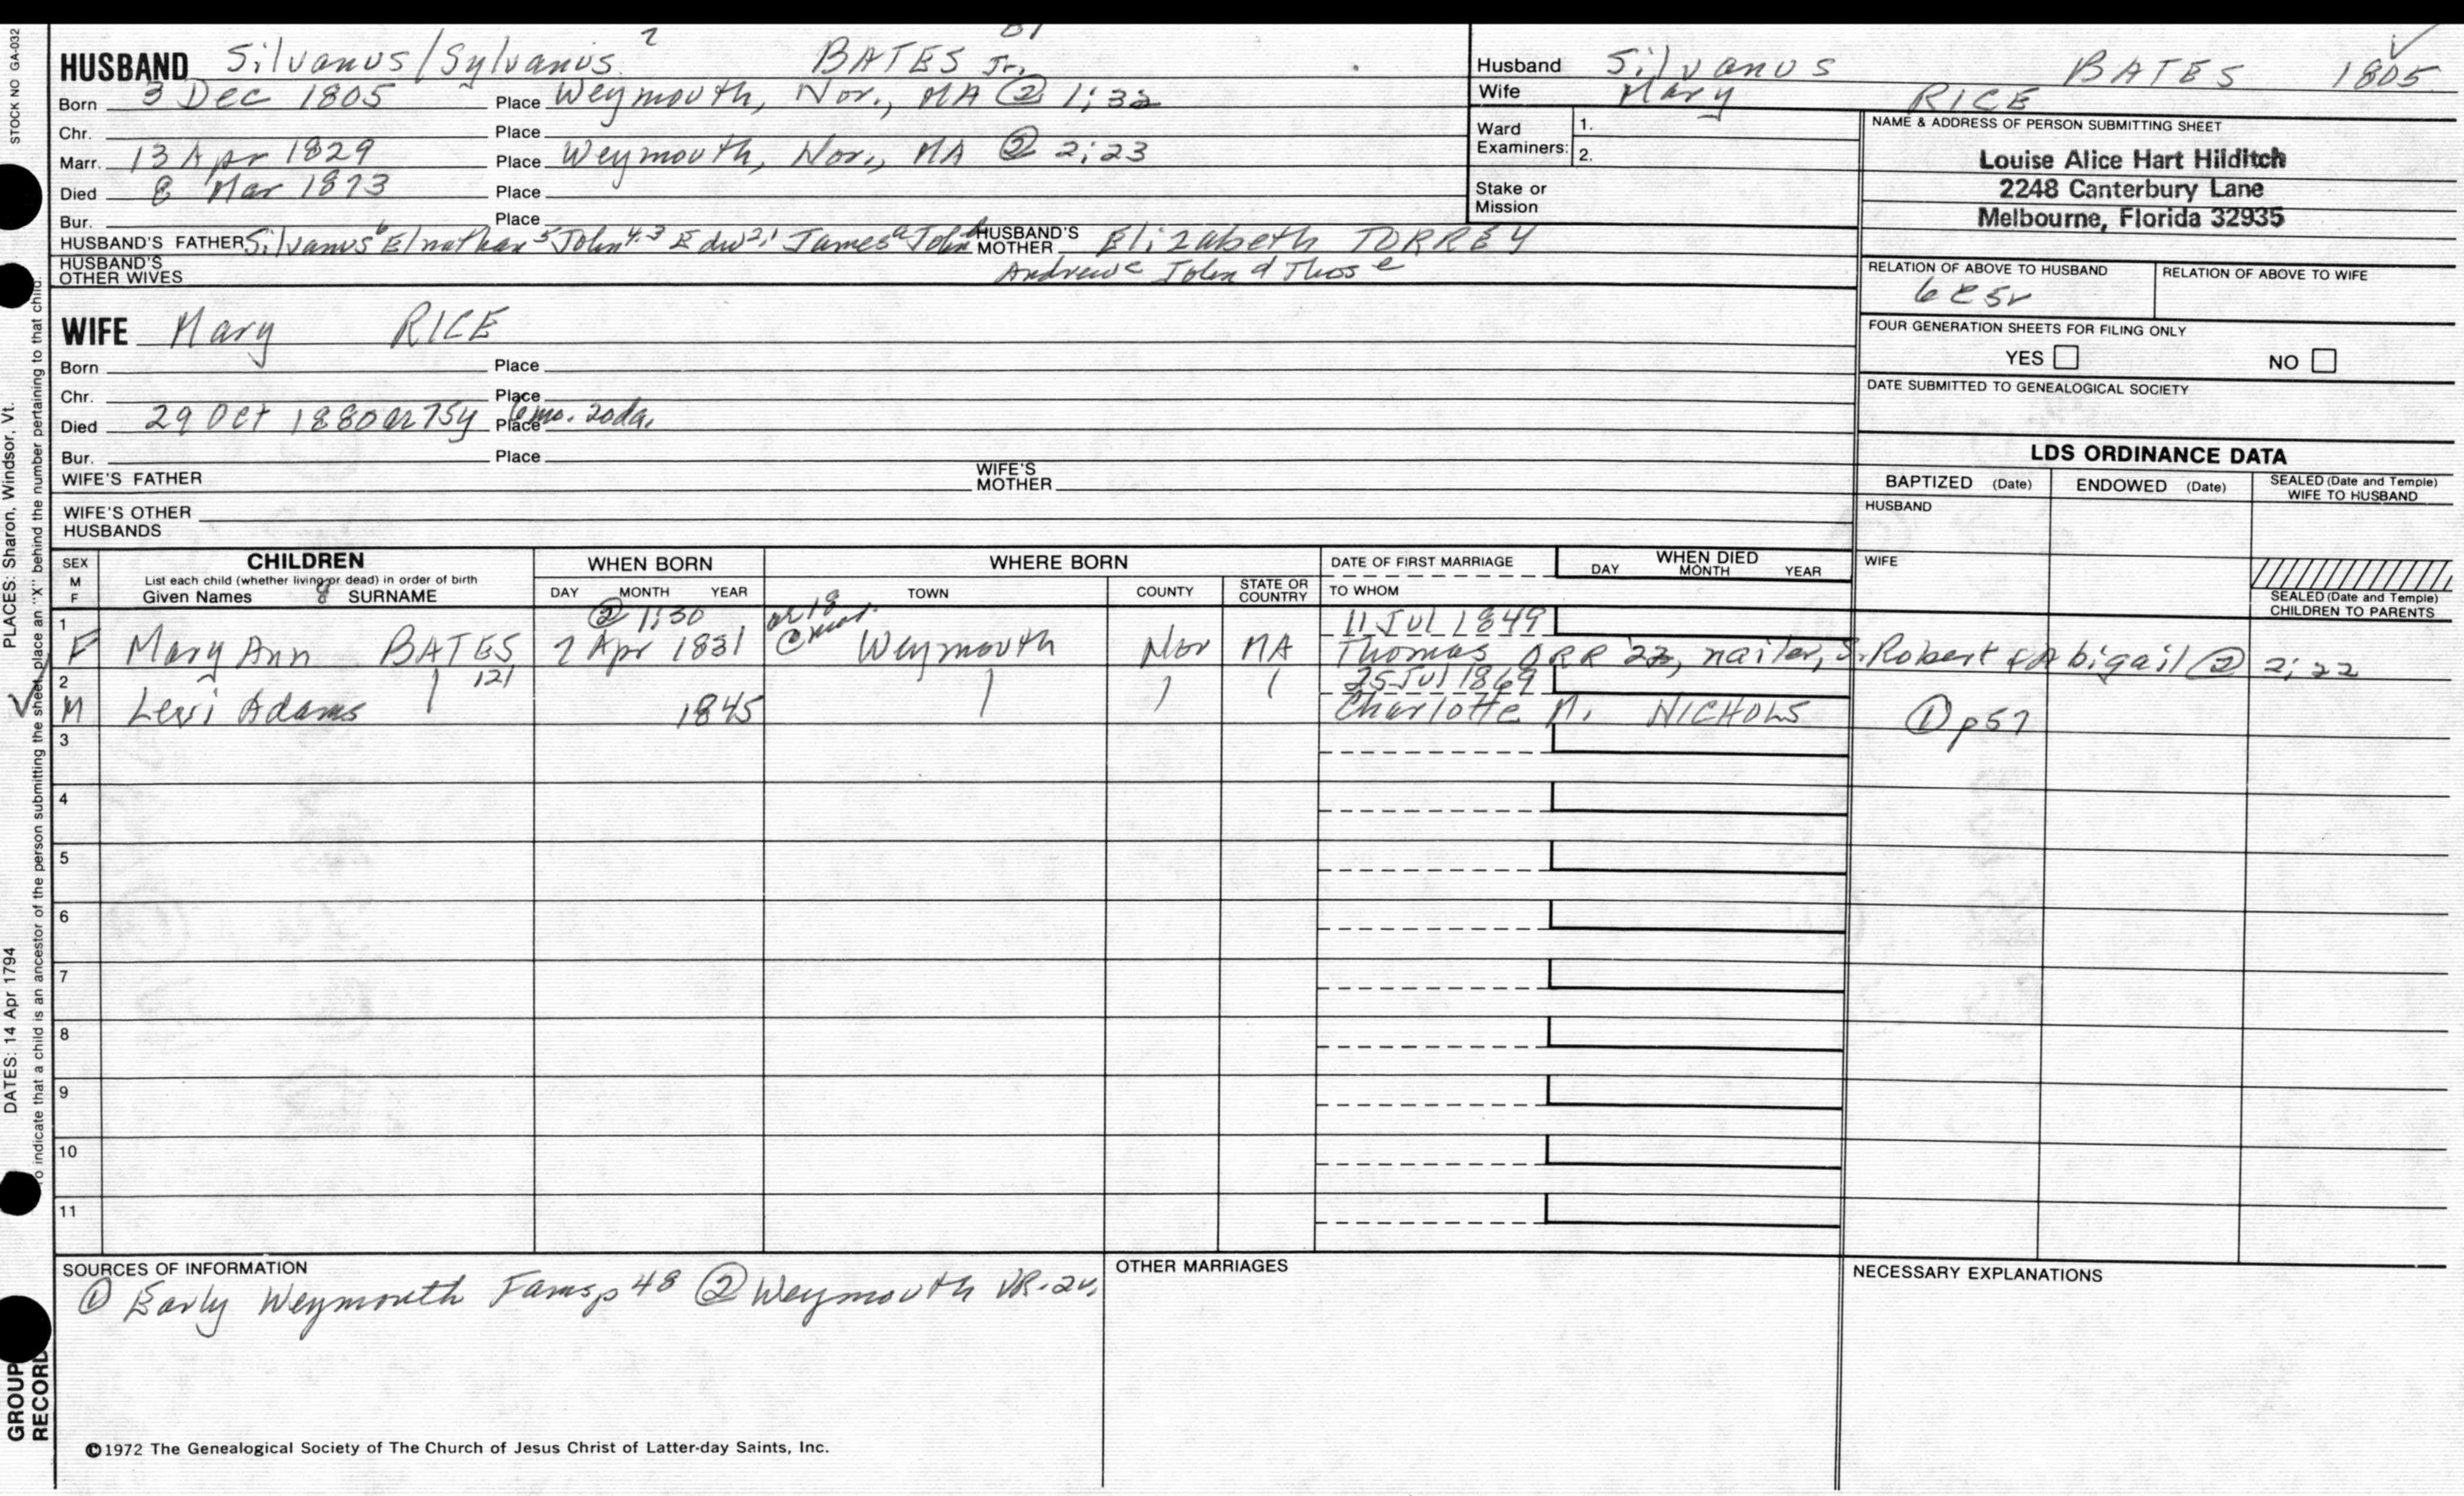 STOCK NO GA-032
PLACES: Sharon, Windsor, Vt.
DATES: 14 Apr 1794
To indicate that a child is an ancestor of the person submitting the sheet, place an "X" behind the number pertaining to that child.
GROUP
RECORD
HUSBAND Silvanus/Sylvanus 7 BATES Jr.
Born 3 Dec 1805 Place Weymouth, Nor., MA ② 1;32
Chr. Place
Marr. 13 Apr 1829 Place Weymouth, Nor., MA ② 2;23
Died 8 Mar 1873 Place
Bur. Place
HUSBAND'S FATHER Silvanus 6 Elnathan 5 John 4.3 Edw 2,1 James a John b HUSBAND'S MOTHER Elizabeth TORREY
HUSBAND'S OTHER WIVES Andrew c John d Thos e
WIFE Mary RICE
Born Place
Chr. Place
Died 29 Oct 1880 ae 75y 6mo. 20da. Place
Bur. Place
WIFE'S FATHER WIFE'S MOTHER
WIFE'S OTHER HUSBANDS
Husband Silvanus BATES 1805
Wife Mary RICE
Ward Examiners: 1.
2.
Stake or Mission
NAME & ADDRESS OF PERSON SUBMITTING SHEET
Louise Alice Hart Hilditch
2248 Canterbury Lane
Melbourne, Florida 32935
RELATION OF ABOVE TO HUSBAND RELATION OF ABOVE TO WIFE
6c5r
FOUR GENERATION SHEETS FOR FILING ONLY
YES NO
DATE SUBMITTED TO GENEALOGICAL SOCIETY
LDS ORDINANCE DATA
BAPTIZED (Date) ENDOWED (Date) SEALED (Date and Temple) WIFE TO HUSBAND
HUSBAND
WIFE
SEALED (Date and Temple) CHILDREN TO PARENTS
SEX M F CHILDREN WHEN BORN WHERE BORN DATE OF FIRST MARRIAGE WHEN DIED
List each child (whether living or dead) in order of birth
Given Names 8 SURNAME DAY MONTH YEAR TOWN COUNTY STATE OR COUNTRY TO WHOM DAY MONTH YEAR
1 ② 1;30 ae 18 @mar. 11 Jul 1849
F Mary Ann BATES 7 Apr 1831 Weymouth Nor MA Thomas ORR 22, nailer, S. Robert & Abigail ② 2;22
2 121 25 Jul 1869
M Levi Adams 1845 Charlotte M. NICHOLS ① p57
3
4
5
6
7
8
9
10
11
SOURCES OF INFORMATION OTHER MARRIAGES NECESSARY EXPLANATIONS
① Early Weymouth Fams p 48 ② Weymouth VR-2v.
©1972 The Genealogical Society of The Church of Jesus Christ of Latter-day Saints, Inc.